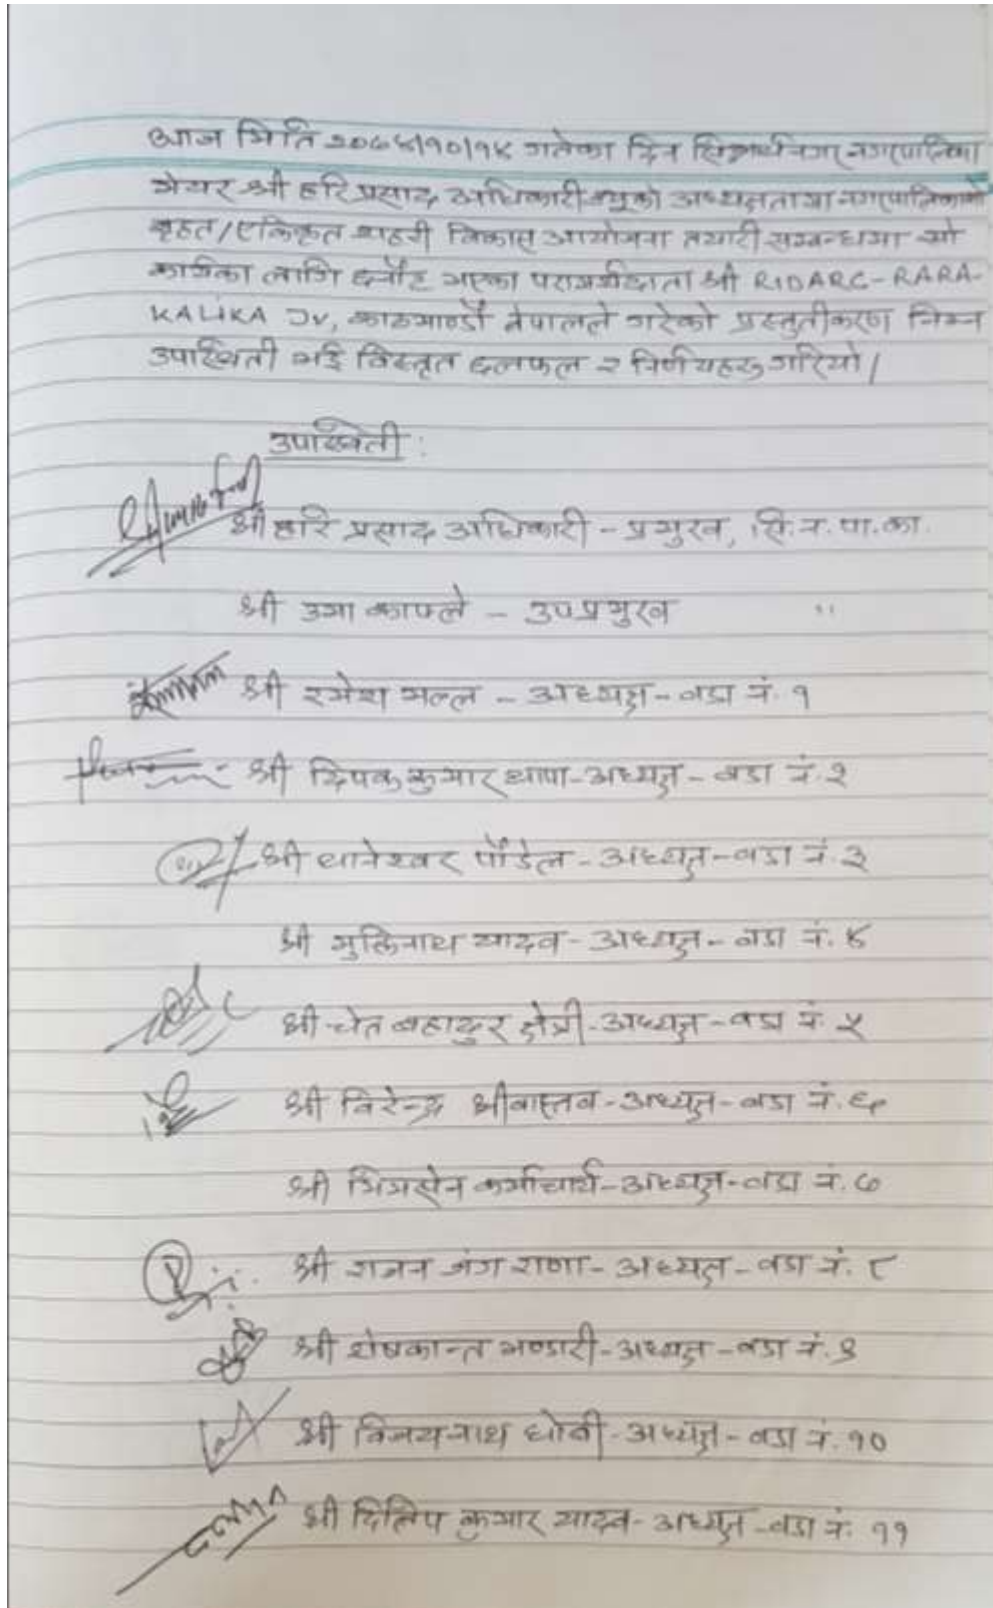 आज मिति २०७५/१०/१५ गतेका दिन सिद्धार्थनगर नगरपालिका
मेयर श्री हरि प्रसाद अधिकारी ज्यूको अध्यक्षतामा नगरपालिकाको
बृहत/एकिकृत शहरी विकास आयोजना तयारी सम्बन्धमा सो
कार्यका लागि छनौट भएका परामर्शदाता श्री RIDARC-RARA-
KALIKA JV, काठमाण्डौ नेपालले गरेको प्रस्तुतीकरण निम्न
उपस्थिती भई विस्तृत छलफल र निर्णयहरु गरियो।
उपस्थिती :
श्री हरि प्रसाद अधिकारी - प्रमुख, सि.न.पा.का.
श्री उमा काफ्ले - उपप्रमुख "
श्री रमेश मल्ल - अध्यक्ष - वडा नं. १
श्री दिपक कुमार थापा - अध्यक्ष - वडा नं. २
श्री थानेश्वर पौडेल - अध्यक्ष - वडा नं. ३
श्री मुक्तिनाथ यादव - अध्यक्ष - वडा नं. ४
श्री चेत बहादुर क्षेत्री - अध्यक्ष - वडा नं. ५
श्री विरेन्द्र श्रीवास्तव - अध्यक्ष - वडा नं. ६
श्री भिमसेन कर्माचार्य - अध्यक्ष - वडा नं. ७
श्री राजन जंग राणा - अध्यक्ष - वडा नं. ८
श्री शेषकान्त भण्डारी - अध्यक्ष - वडा नं. ९
श्री विजयनाथ धोवी - अध्यक्ष - वडा नं. १०
श्री दिलिप कुमार यादव - अध्यक्ष - वडा नं. ११